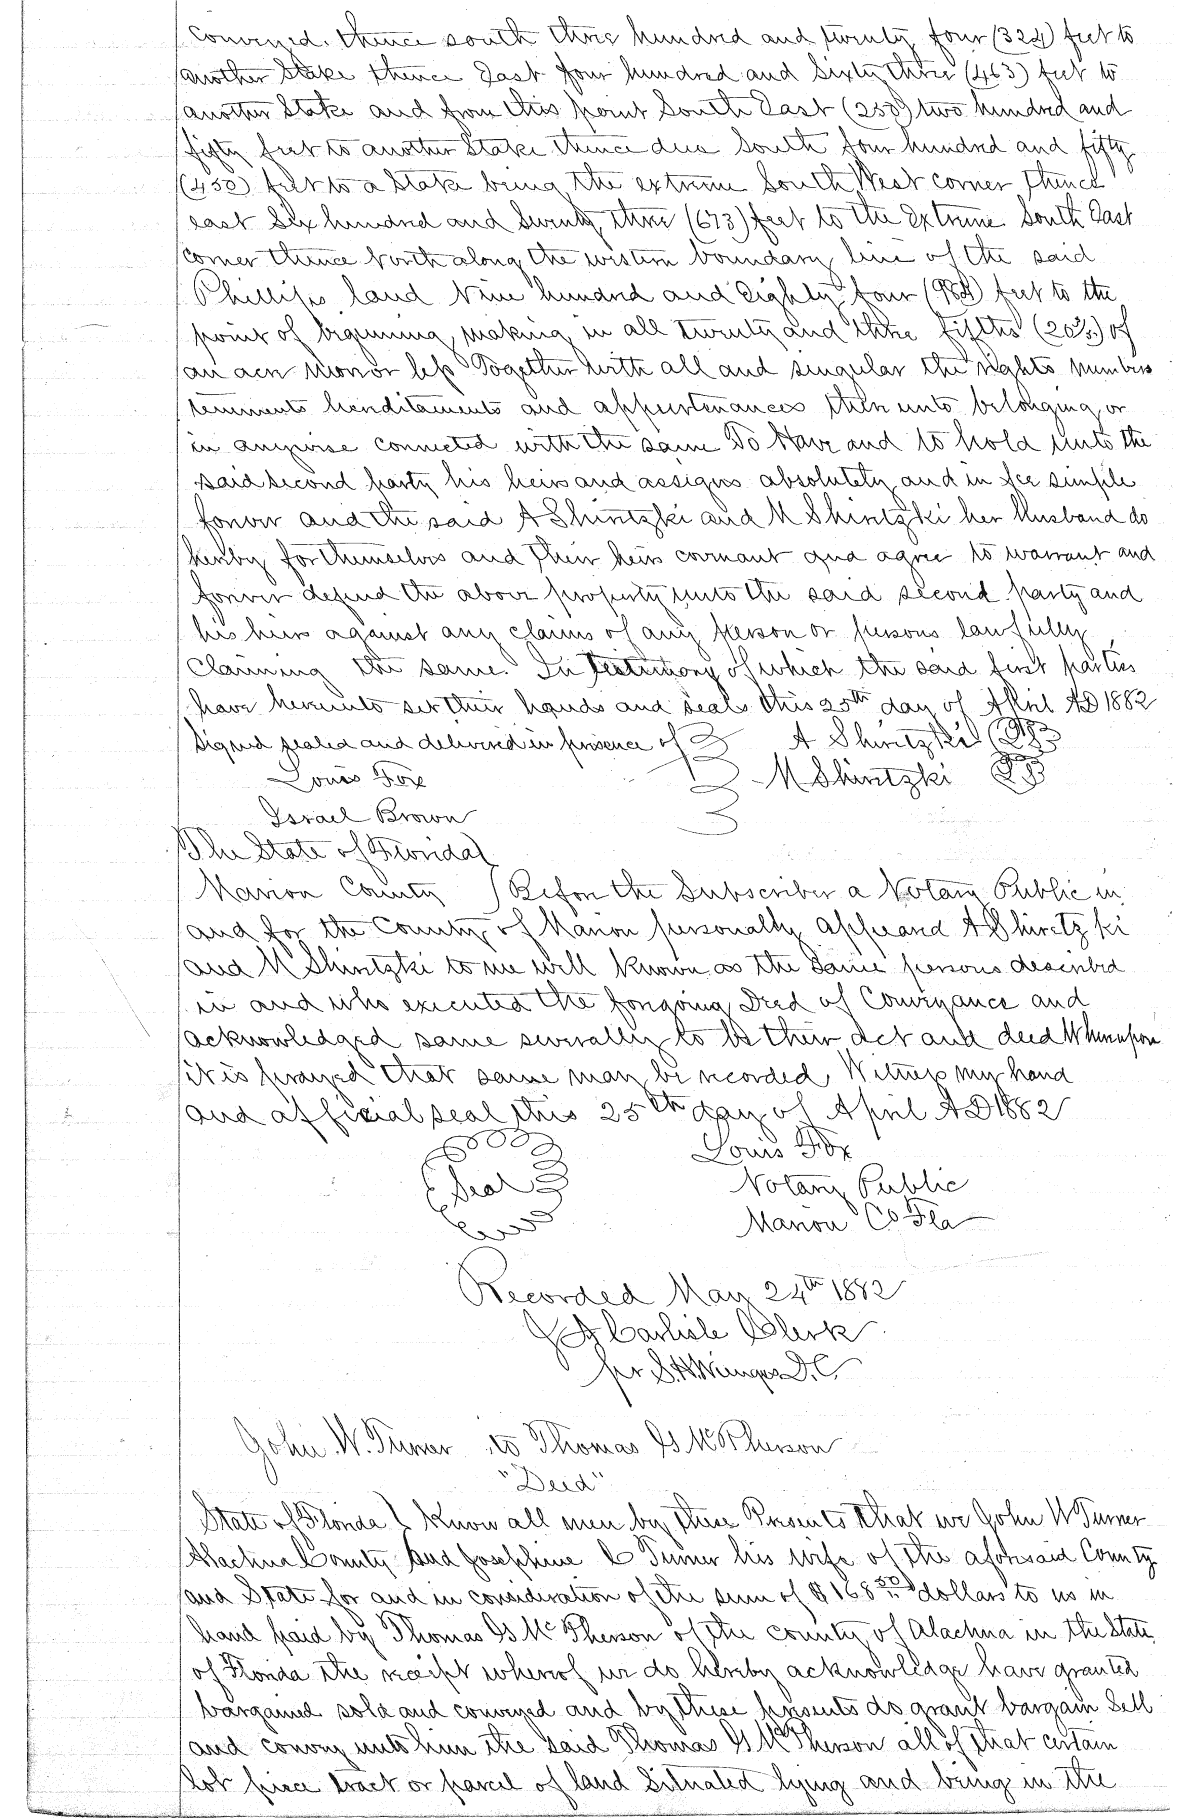 conveyed. thence south three hundred and twenty four (324) feet to
another Stake thence East four hundred and Sixty three (463) feet to
another Stake and from this point South East (250) two hundred and
fifty feet to another Stake thence due South four hundred and fifty
(450) feet to a Stake being the extreme South West corner thence
east Six hundred and Seventy three (673) feet to the Extreme South East
corner thence North along the western boundary line of the said
Phillips land Nine hundred and Eighty four (984) feet to the
point of beginning, making in all twenty and three fifths (20 3/5) of
an acre more or less Together with all and singular the rights members
tenements hereditaments and appurtenances there unto belonging or
in anywise connected with the same To Have and to hold unto the
said second party his heirs and assigns absolutely and in fee simple
forever and the said A Shiretzki and M Shiretzki her Husband do
hereby for themselves and their heirs covenant and agree to warrant and
forever defend the above property unto the said second party and
his heirs against any claims of any person or persons lawfully
claiming the same. In testimony of which the said first parties
have hereunto set their hands and seals this 25th day of April AD 1882
Signed sealed and delivered in presence of A Shiretzki
Louis Fox M Shiretzki
Israel Brown
The State of Florida
Marion County Before the Subscriber a Notary Public in
and for the County of Marion personally appeared A Shiretzki
and M Shiretzki to me well known as the same persons described
in and who executed the foregoing Deed of Conveyance and
acknowledged same severally to be their act and deed Whereupon
it is prayed that same may be recorded, Witness my hand
and official seal this 25th day of April AD 1882
Louis Fox
Seal Notary Public
Marion Co Fla
Recorded May 24th 1882
Carlisle Clerk
per S.H. D.C.
John W. Turner to Thomas G McPherson
"Deed"
State of Florida Know all men by these Presents that we John W Turner
Alachua County and Josephine C Turner his wife of the aforesaid County
and State for and in consideration of the sum of $168 50/100 dollars to us in
hand paid by Thomas G McPherson of the county of Alachua in the State
of Florida the receipt whereof we do hereby acknowledge have granted
bargained sold and conveyed and by these presents do grant bargain Sell
and convey unto him the said Thomas G McPherson all of that certain
lot piece tract or parcel of land Situated lying and being in the